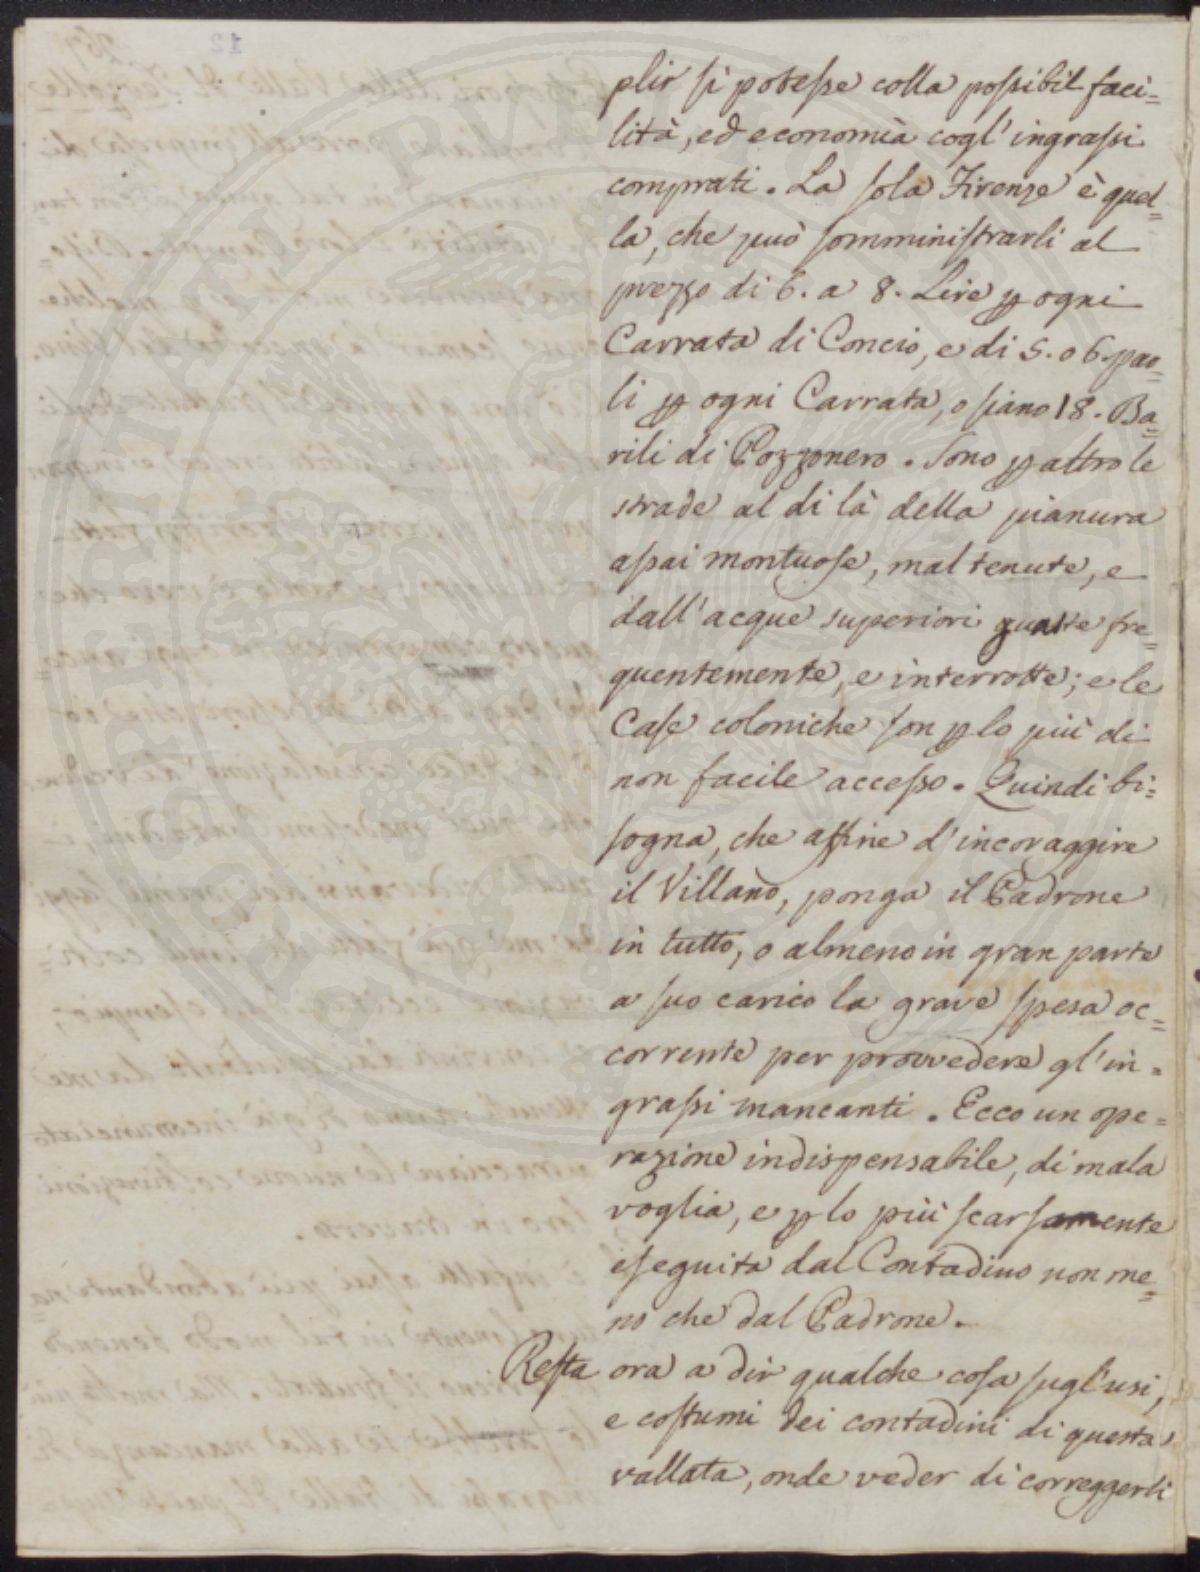 plir si potesse colla possibil faci=
lità, ed economia cogl'ingrassi
comprati. La sola Firenze è quel=
la, che può somministrarli al
prezzo di 6. a 8. Lire p ogni
Carrata di Concio, e di 5. o 6. pao=
li p ogni Carrata, o siano 18. Ba=
rili di Pozzonero. Sono p altro le
strade al di là della pianura
assai montuose, mal tenute, e
dall'acque superiori guaste fre=
quentemente, e interrotte; e le
Case coloniche son p lo più di
non facile accesso. Quindi bi=
sogna, che affine d'incoraggire
il Villano, ponga il Padrone
in tutto, o almeno in gran parte
a suo carico la grave spesa oc=
corrente per provvedere gl'in=
grassi mancanti. Ecco un ope=
razione indispensabile, di mala
voglia, e p lo più scarsamente
eseguita dal Contadino non me=
no che dal Padrone.
Resta ora a dir qualche cosa sugl'usi,
e costumi dei contadini di questa
vallata, onde veder di correggerli